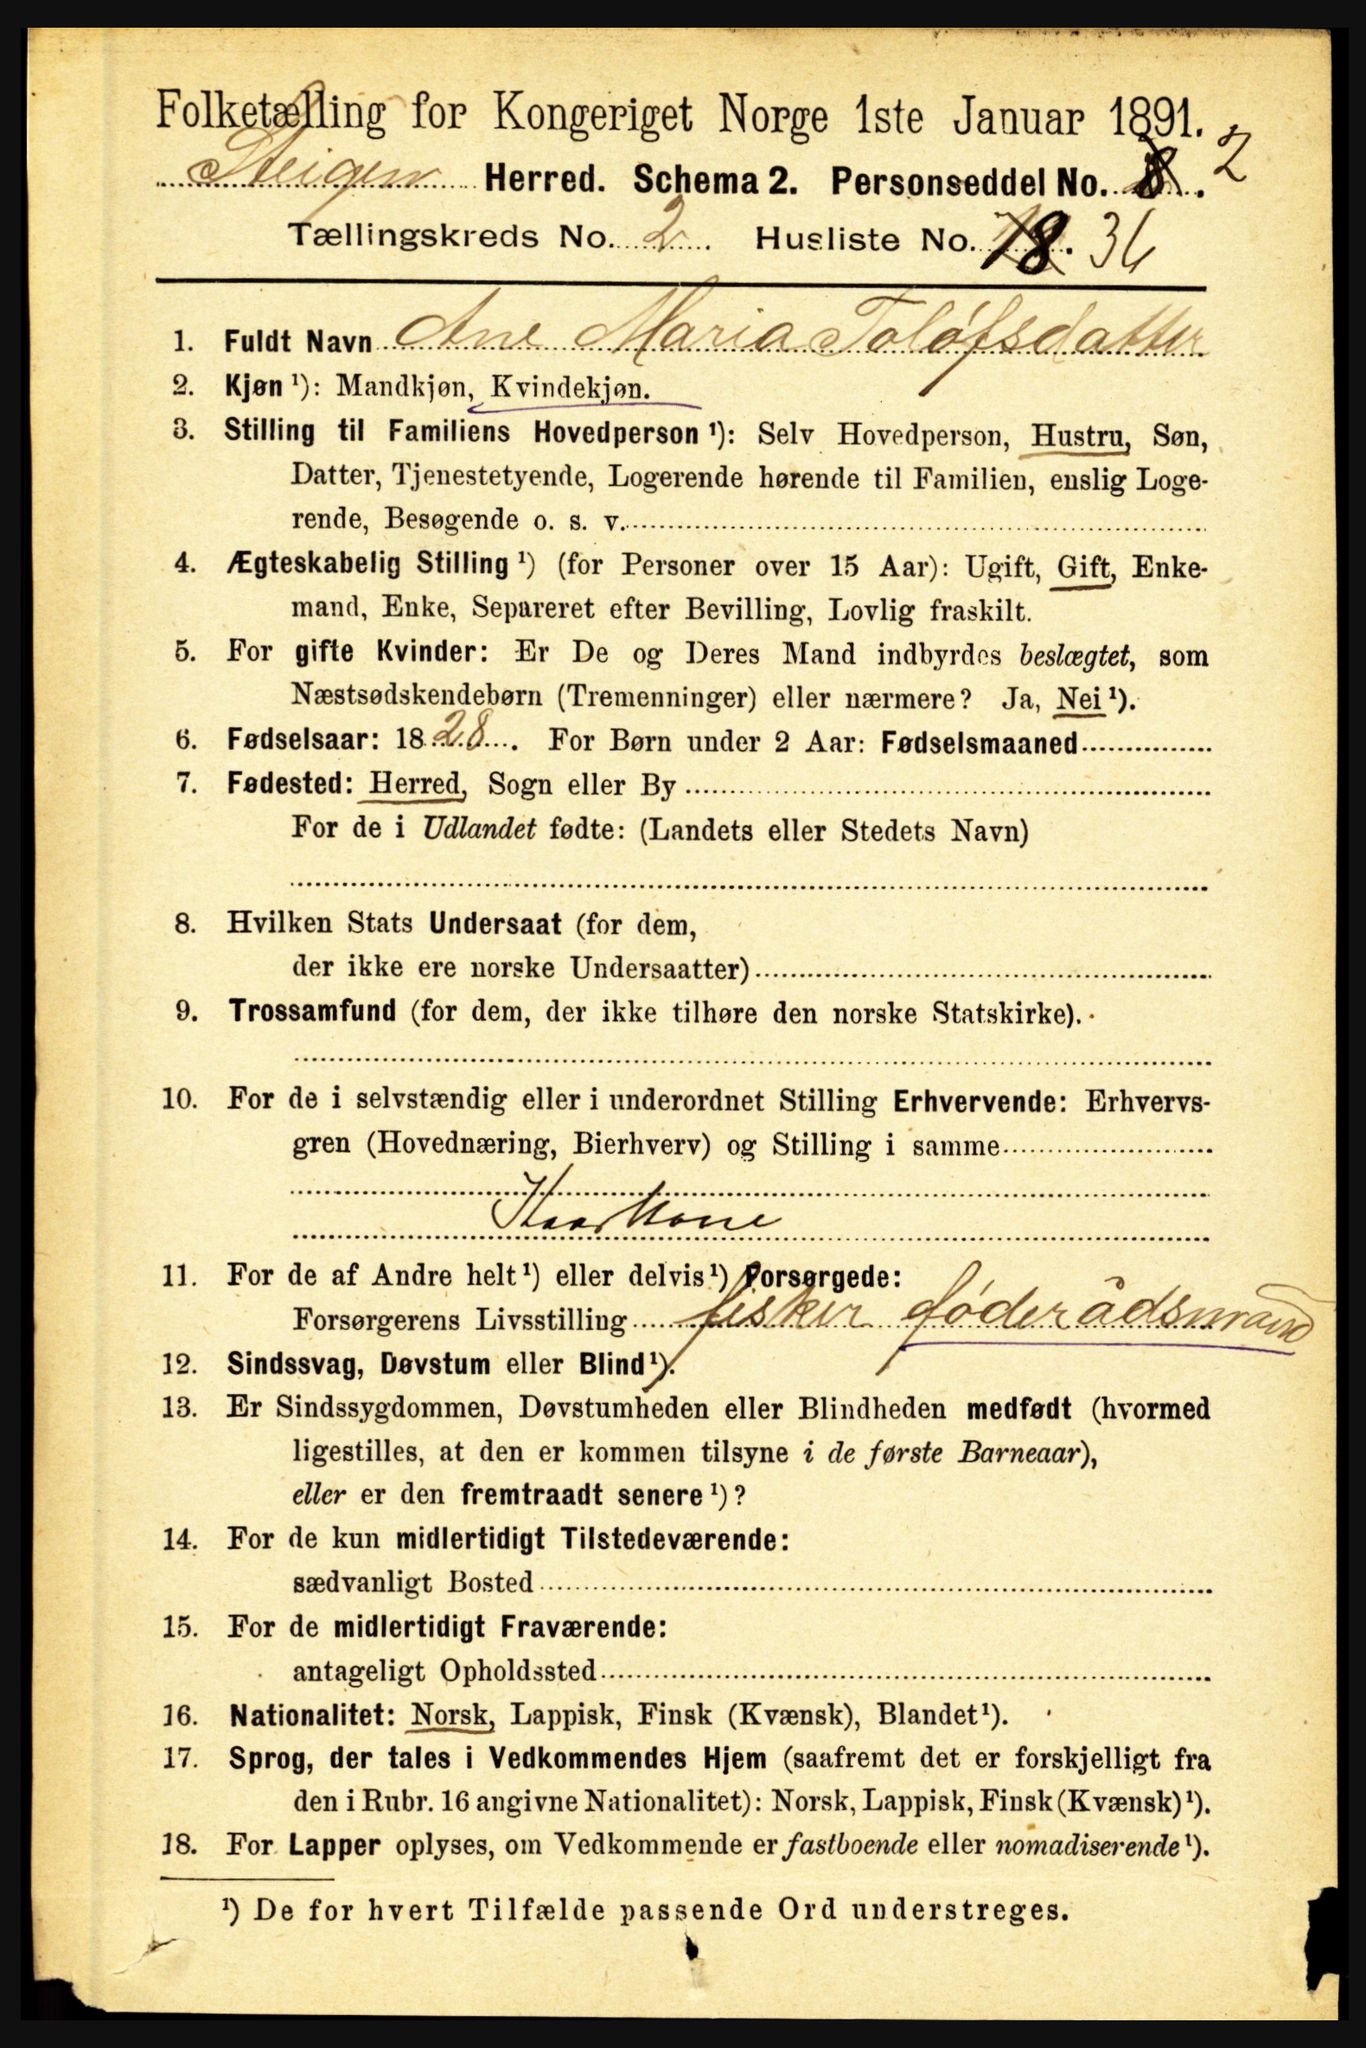 Folketælling for Kongeriget Norge 1ste Januar 1891.
Steigen Herred. Schema 2. Personseddel No. 8. 2
Tællingskreds No. 2. Husliste No. 18. 36
1. Fuldt Navn Ane Maria Toløfsdatter
2. Kjøn ¹): Mandkjøn, Kvindekjøn.
3. Stilling til Familiens Hovedperson ¹): Selv Hovedperson, Hustru, Søn,
Datter, Tjenestetyende, Logerende hørende til Familien, enslig Loge-
rende, Besøgende o. s. v.
4. Ægteskabelig Stilling ¹) (for Personer over 15 Aar): Ugift, Gift, Enke-
mand, Enke, Separeret efter Bevilling, Lovlig fraskilt.
5. For gifte Kvinder: Er De og Deres Mand indbyrdes beslægtet, som
Næstsødskendebørn (Tremenninger) eller nærmere? Ja, Nei ¹).
6. Fødselsaar: 1828. For Børn under 2 Aar: Fødselsmaaned
7. Fødested: Herred, Sogn eller By
For de i Udlandet fødte: (Landets eller Stedets Navn)
8. Hvilken Stats Undersaat (for dem,
der ikke ere norske Undersaatter)
9. Trossamfund (for dem, der ikke tilhøre den norske Statskirke).
10. For de i selvstændig eller i underordnet Stilling Erhvervende: Erhvervs-
gren (Hovednæring, Bierhverv) og Stilling i samme
Kaarkone
11. For de af Andre helt ¹) eller delvis ¹) Forsørgede:
Forsørgerens Livsstilling fisker føderådsmand
12. Sindssvag, Døvstum eller Blind ¹).
13. Er Sindssygdommen, Døvstumheden eller Blindheden medfødt (hvormed
ligestilles, at den er kommen tilsyne i de første Barneaar),
eller er den fremtraadt senere ¹)?
14. For de kun midlertidigt Tilstedeværende:
sædvanligt Bosted
15. For de midlertidigt Fraværende:
antageligt Opholdssted
16. Nationalitet: Norsk, Lappisk, Finsk (Kvænsk), Blandet ¹).
17. Sprog, der tales i Vedkommendes Hjem (saafremt det er forskjelligt fra
den i Rubr. 16 angivne Nationalitet): Norsk, Lappisk, Finsk (Kvænsk) ¹).
18. For Lapper oplyses, om Vedkommende er fastboende eller nomadiserende ¹).
¹) De for hvert Tilfælde passende Ord understreges.